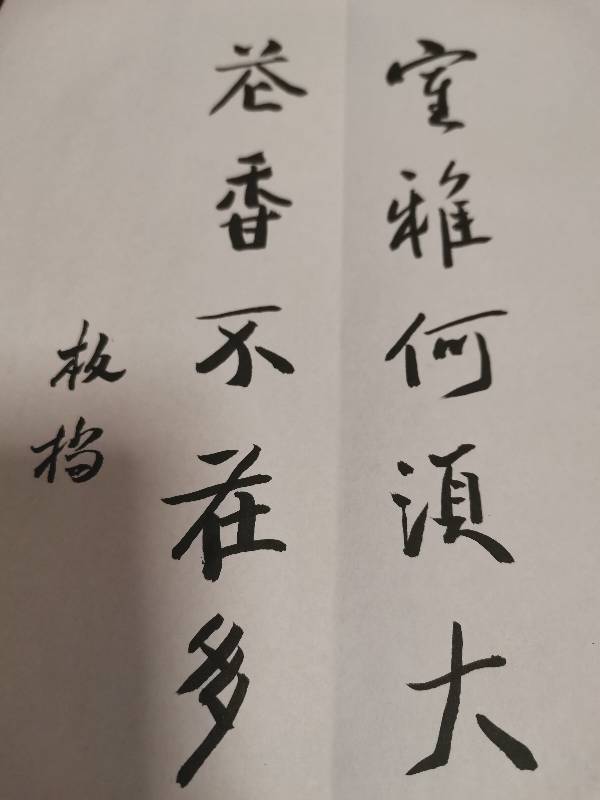 室雅何須大
花香不在多
板档